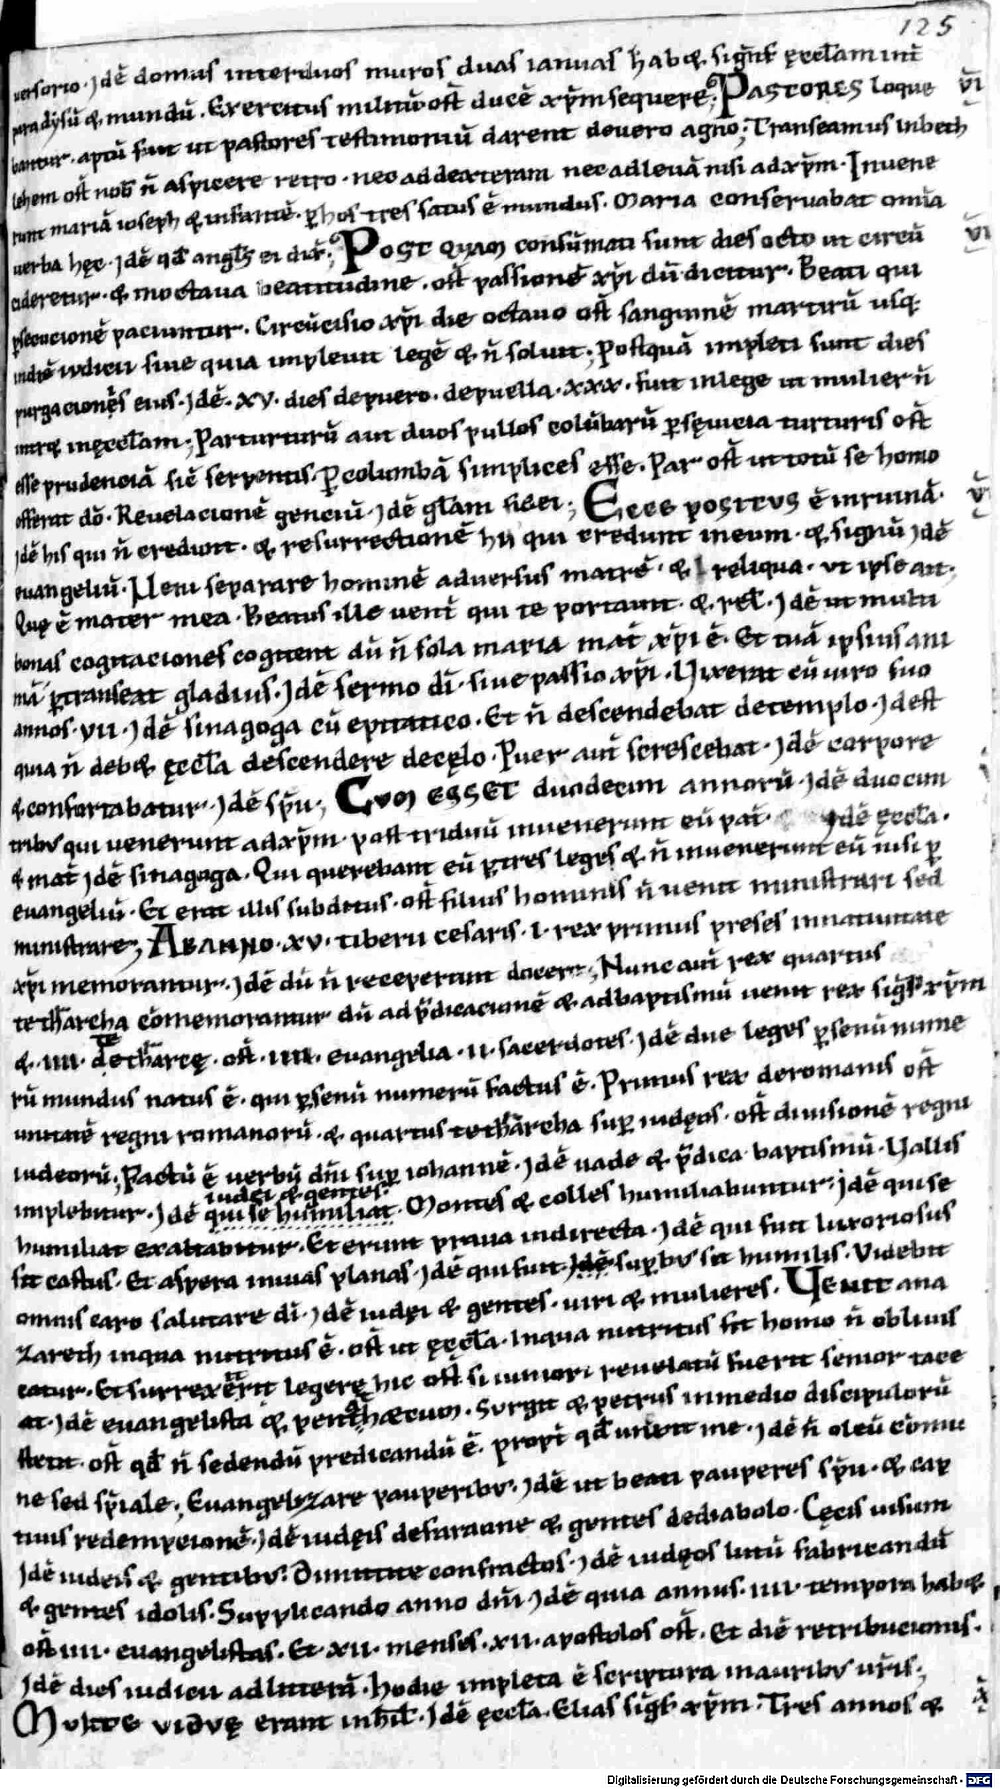 125
versorio · Idē domus inter duos muros duas ianuas habet · signf ęccłam int̄
paradysū et mundū · Exercitus militū ost̄ ducē xp̄m sequere; PASTORES loque
bantur · aptū fuit ut pastores testimoniū darent de vero agno; Transeamus in beth
lehem ost̄ nob̄ n̄ aspicere retro · nec ad dexteram nec ad levā nisi ad xp̄m · Invene
runt mariā ioseph et infantē · p̄ hos tres satus ē mundus · Maria conservabat omīa
verba hęc · Idē qđ angłs ei dix̄; POST QUAM consūmati sunt dies octo ut circū
cideretur · et in octava beatitudine · ost̄ passionē xp̄i dū dicitur · Beati qui
psecucionē paciuntur · Circūcisio xp̄i die octavo ost̄ sanguinē martirū usq·
in diē iudicii sive quia implevit legē et n̄ solvit; Postquā impleti sunt dies
purgacionęs eius · Idē · xv · dies de puero · de puella · xxx · fuit in lege ut mulier n̄
intret in ęccłam; Par turturū aut duos pullos colūbarū
esse prudenciā sic̄ serpentis · P columbā simplices esse · Par ost̄ ut totū se homo
offerat dō · Revelacionē genciū · Idē głam fidei; ECCE POSITUS ē in ruinā ·
Idē his qui n̄ credunt · et resurrectionē hii qui credunt in eum · et signū Idē
evangeliū · Veni separare hominē adversus matrē · et reliqua · ut ipse ait ·
Quę ē mater mea · Beatus ille vent̄ qui te portavit · et reł · Idē ut multi
bonas cogitaciones cogitent dū n̄ sola maria mat̄ xp̄i ē · Et tuā ipsius ani
mā ptranseat gladius · Idē sermo dī · sive passio xp̄i · Vixerat cū viro suo
annos · vii · Idē sinagoga cū eptatico · Et n̄ descendebat de templo · Idest
quia n̄ debet ęccła descendere de cęlo · Puer aut̄ screscebat · Idē corpore
et confortabatur · Idē sp̄u; CUM ESSET duodecim annorū · Idē duocim
tribꝰ qui venerunt ad xp̄m · post triduū invenerunt eū pat̄ · Idē ęccła ·
et mat̄ Idē sinagoga · Qui querebant eū p tres leges et n̄ invenerunt eū nisi p
evangeliū · Et erat illis subditus · ost̄ filius hominis n̄ venit ministrari sed
ministrare; AB ANNO · XV · tiberii cesaris · I · rex primus preses in nativitate
xp̄i memorantur · Idē dū n̄ receperunt docere; Nunc aut̄ rex quartus
tetharcha cōmemorantur dū ad p̄dicacionē et ad baptismū venit rex signf xp̄m
et · iiii · detharcę · ost̄ · iiii · evangelia · ii · sacerdotes · Idē due leges p senū nume
rū mundus natus ē · qui p senū numerū factus ē · Primus rex de romanis ost̄
unitatē regni romanorū · et quartus tetharcha sup iudęos · ost̄ divisionē regni
iudeorū; Factū ē verbū dn̄i sup iohannē · Idē vade et p̄dica baptismū · Vallis
iudęi et gentes·
implebitur · Idē qui se humiliat · Montes et colles humiliabuntur · Idē qui se
humiliat exaltabitur · Et erunt prava in directa · Idē qui fuit luxoriosus
sit castus · Et aspera in vias planas · Idē qui fuit Idē supbꝰ sit humilis · Videbit
omnis caro salutare dī · Idē iudęi et gentes · viri et mulieres · VENIT ana
zareth in qua nutritus ē · ost̄ ut ęccła · In qua nutritus sit homo n̄ oblivis
catur · Et surrexerit legerę hic ost̄ si iuniori revelatū fuerit senior tace
at · Idē evangelista et · Surgit et petrus in medio discipulorū
stetit · ost̄ qđ n̄ sedendū predicandū ē · propt̄ qđ unxit me · Idē n̄ oleū cōmu
ne sed sp̄iale; Evangelizare pauperibꝰ · Idē ut beati pauperes sp̄u · et cap
tivis redempcionē · Idē iudęis de et gentes de diabolo · Cęcis visum
Idē iudeis et gentibꝰ · Dimittite confractos · Idē iudęos lutū fabricandū
et gentes idolis · Supplicando anno dn̄i · Idē quia annus · iiii · tempora habet
ost̄ iiii · evangelistas · Et · xii · menses · xii · apostolos ost̄ · Et diē retribucionis ·
Idē dies iudicii ad litterā · hodie impleta ē scriptura in auribꝰ vr̄is;
MULTE VIDUĘ erant in hīsł · Idē ęccła · Elias signf xp̄m · Tres annos et
Digitalisierung gefördert durch die Deutsche Forschungsgemeinschaft - DFG